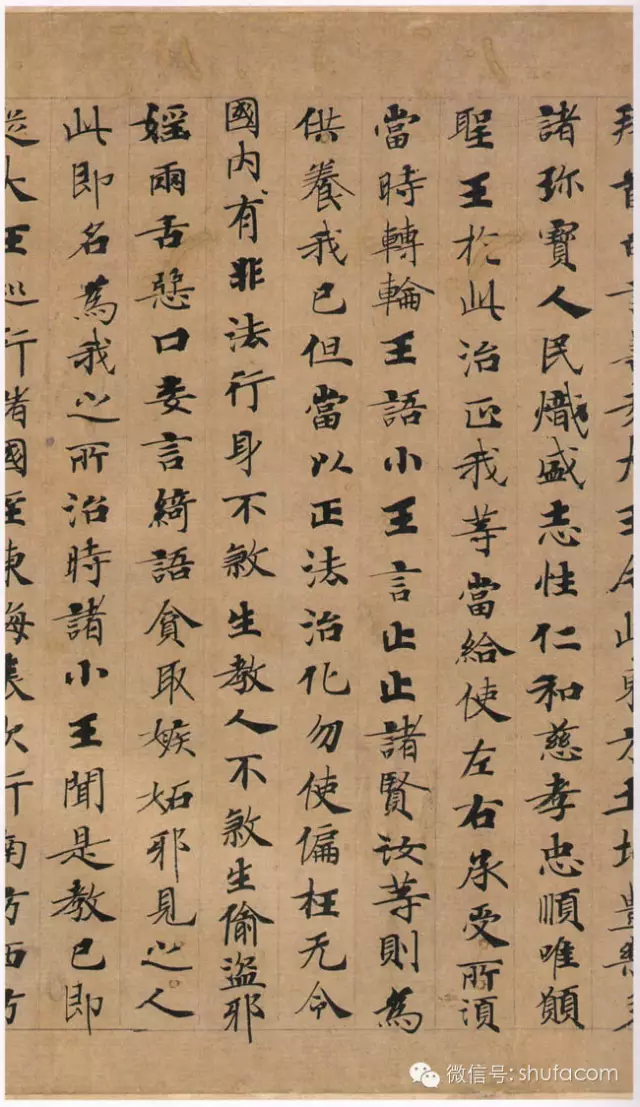 拜首白言善来大王今此東方土地豊樂多
諸珎寳人民熾盛志性仁和慈孝忠順唯願
聖王於此治正我等當給使左右承受所湏
當時轉輪王語小王言止止諸賢汝等則為
供養我已但當以正法治化勿使偏枉无令
國内有非法行身不煞生教人不煞生偷盗邪
婬兩舌惡口妄言綺語貪取嫉妬邪見之人
此即名為我之所治時諸小王聞是教已即
從大王巡行諸國至東海表次行南方西方
微信号: shufacom